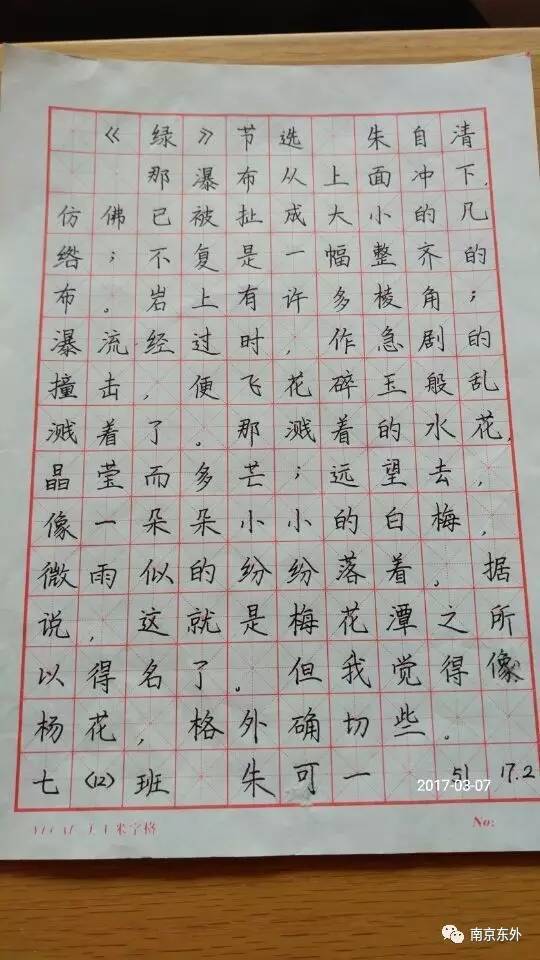 《绿》节选 朱自清
那瀑布从上面冲下,
仿佛已被扯成大小的几
绺；不复是一幅整齐的
布。岩上有许多棱角；
瀑流经过时,作急剧的
撞击,便飞花碎玉般乱
溅着了。那溅着的水花,
晶莹而多芒；远望去,
像一朵朵小小的白梅,
微雨似的纷纷落着。据
说,这就是梅花潭之所
以得名了。但我觉得像
杨花,格外确切些。
七(12)班 朱可一 51 17.2
2017-03-07
米字格 No:
南京东外